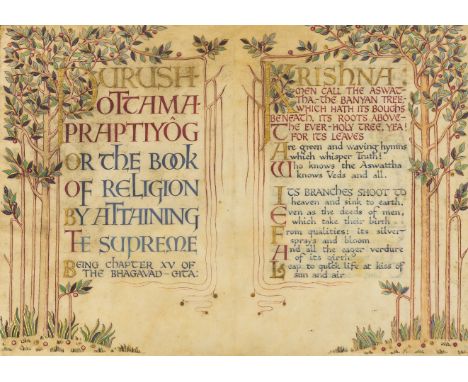 PURUSHA
OTTAMA
PRAPTIYÔG
OR THE BOOK
OF RELIGION
BY ATTAINING
THE SUPREME
BEING CHAPTER XV OF
THE BHAGAVAD-GITA:
KRISHNA:
MEN CALL THE ASWAT
THA,-THE BANYAN TREE,-
WHICH HATH ITS BOUGHS
BENEATH, ITS ROOTS ABOVE-
THE EVER-HOLY TREE, YEA!
FOR ITS LEAVES
Are green and waving hymns
which whisper Truth!
Who knows the Aswattha
knows Veds and all.
Its branches shoot to
heaven and sink to earth,
Even as the deeds of men,
which take their birth
From qualities: its silver
sprays and bloom
And all the eager verdure
of its girth
Leap to quick life at kiss of
sun and air